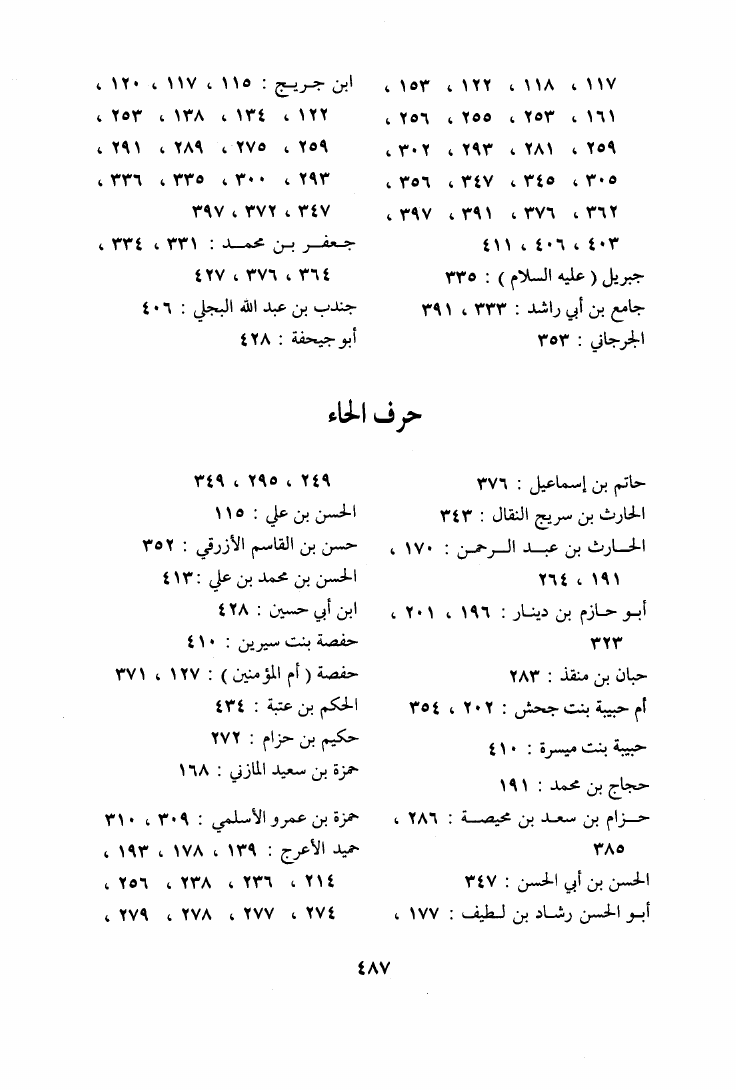 ١١٧ ، ١١٨ ، ١٢٢ ، ١٥٣ ،
١٦١ ، ٢٥٣ ، ٢٥٥ ، ٢٥٦ ،
٢٥٩ ، ٢٨١ ، ٢٩٣ ، ٣٠٢ ،
٣٠٥ ، ٣٤٥ ، ٣٤٧ ، ٣٥٦ ،
٣٦٢ ، ٣٧٦ ، ٣٩١ ، ٣٩٧ ،
٤٠٣ ، ٤٠٦ ، ٤١١
جبريل ( عليه السلام ) : ٣٣٥
جامع بن أبي راشد : ٣٣٣ ، ٣٩١
الجرجاني : ٣٥٣
ابن جريج : ١١٥ ، ١١٧ ، ١٢٠ ،
١٢٢ ، ١٣٤ ، ١٣٨ ، ٢٥٣ ،
٢٥٩ ، ٢٧٥ ، ٢٨٩ ، ٢٩١ ،
٢٩٣ ، ٣٠٠ ، ٣٣٥ ، ٣٣٦ ،
٣٤٧ ، ٣٧٢ ، ٣٩٧
جعفر بن محمد : ٣٣١ ، ٣٣٤ ،
٣٦٤ ، ٣٧٦ ، ٤٢٧
جندب بن عبد الله البجلي : ٤٠٦
أبو جيحفة : ٤٢٨
حرف الحاء
حاتم بن إسماعيل : ٣٧٦
الحارث بن سريج النقال : ٣٤٣
الحارث بن عبد الرحمن : ١٧٠ ،
١٩١ ، ٢٦٤
أبو حازم بن دينار : ١٩٦ ، ٢٠١ ،
٣٢٣
حبان بن منقذ : ٢٨٣
أم حبيبة بنت جحش : ٢٠٢ ، ٣٥٤
حبيبة بنت ميسرة : ٤١٠
حجاج بن محمد : ١٩١
حزام بن سعد بن محيصة : ٢٨٦ ،
٣٨٥
الحسن بن أبي الحسن : ٣٤٧
أبو الحسن رشاد بن لطيف : ١٧٧ ،
٢٤٩ ، ٢٩٥ ، ٣٤٩
الحسن بن علي : ١١٥
حسن بن القاسم الأزرقي : ٣٥٢
الحسن بن محمد بن علي : ٤١٣
ابن أبي حسين : ٤٢٨
حفصة بنت سيرين : ٤١٠
حفصة ( أم المؤمنين ) : ١٢٧ ، ٣٧١
الحكم بن عتبة : ٤٣٤
حكيم بن حزام : ٢٧٢
حمزة بن سعيد المازني : ١٦٨
حمزة بن عمرو الأسلمي : ٣٠٩ ، ٣١٠
حميد الأعرج : ١٣٩ ، ١٧٨ ، ١٩٣ ،
٢١٤ ، ٢٣٦ ، ٢٣٨ ، ٢٥٦ ،
٢٧٤ ، ٢٧٧ ، ٢٧٨ ، ٢٧٩ ،
٤٨٧